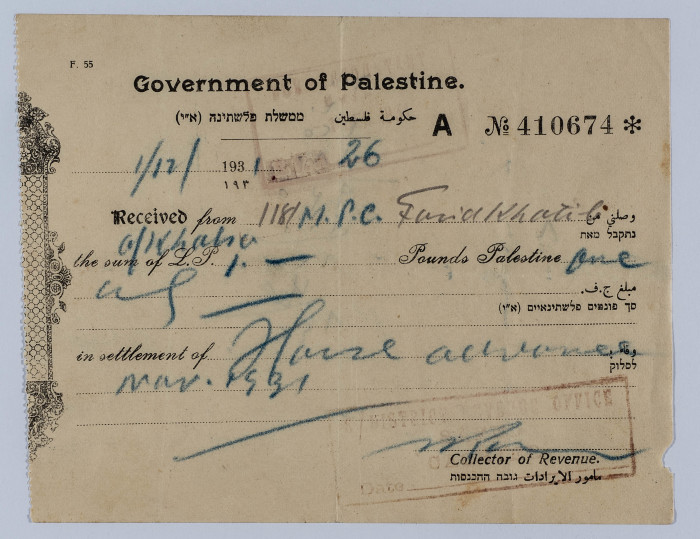 F. 55
Government of Palestine.
ממשלת פלשתינה (א״י) حكومة فلسطين
A № 410674 *
1/12/ 1931 26
١٩٣
Received from 1181 M.P.C. Farid Khatib وصلني من
נתקבל מאת
o/Khalsa
the sum of L.P. 1. — Pounds Palestine one
مبلغ ج.ف.
only
סך פונטים פלשתינאיים (א״י)
in settlement of Horse advance
לסלוק
Nov. 1931
Collector of Revenue.
مأمور الايرادات גובה ההכנסות